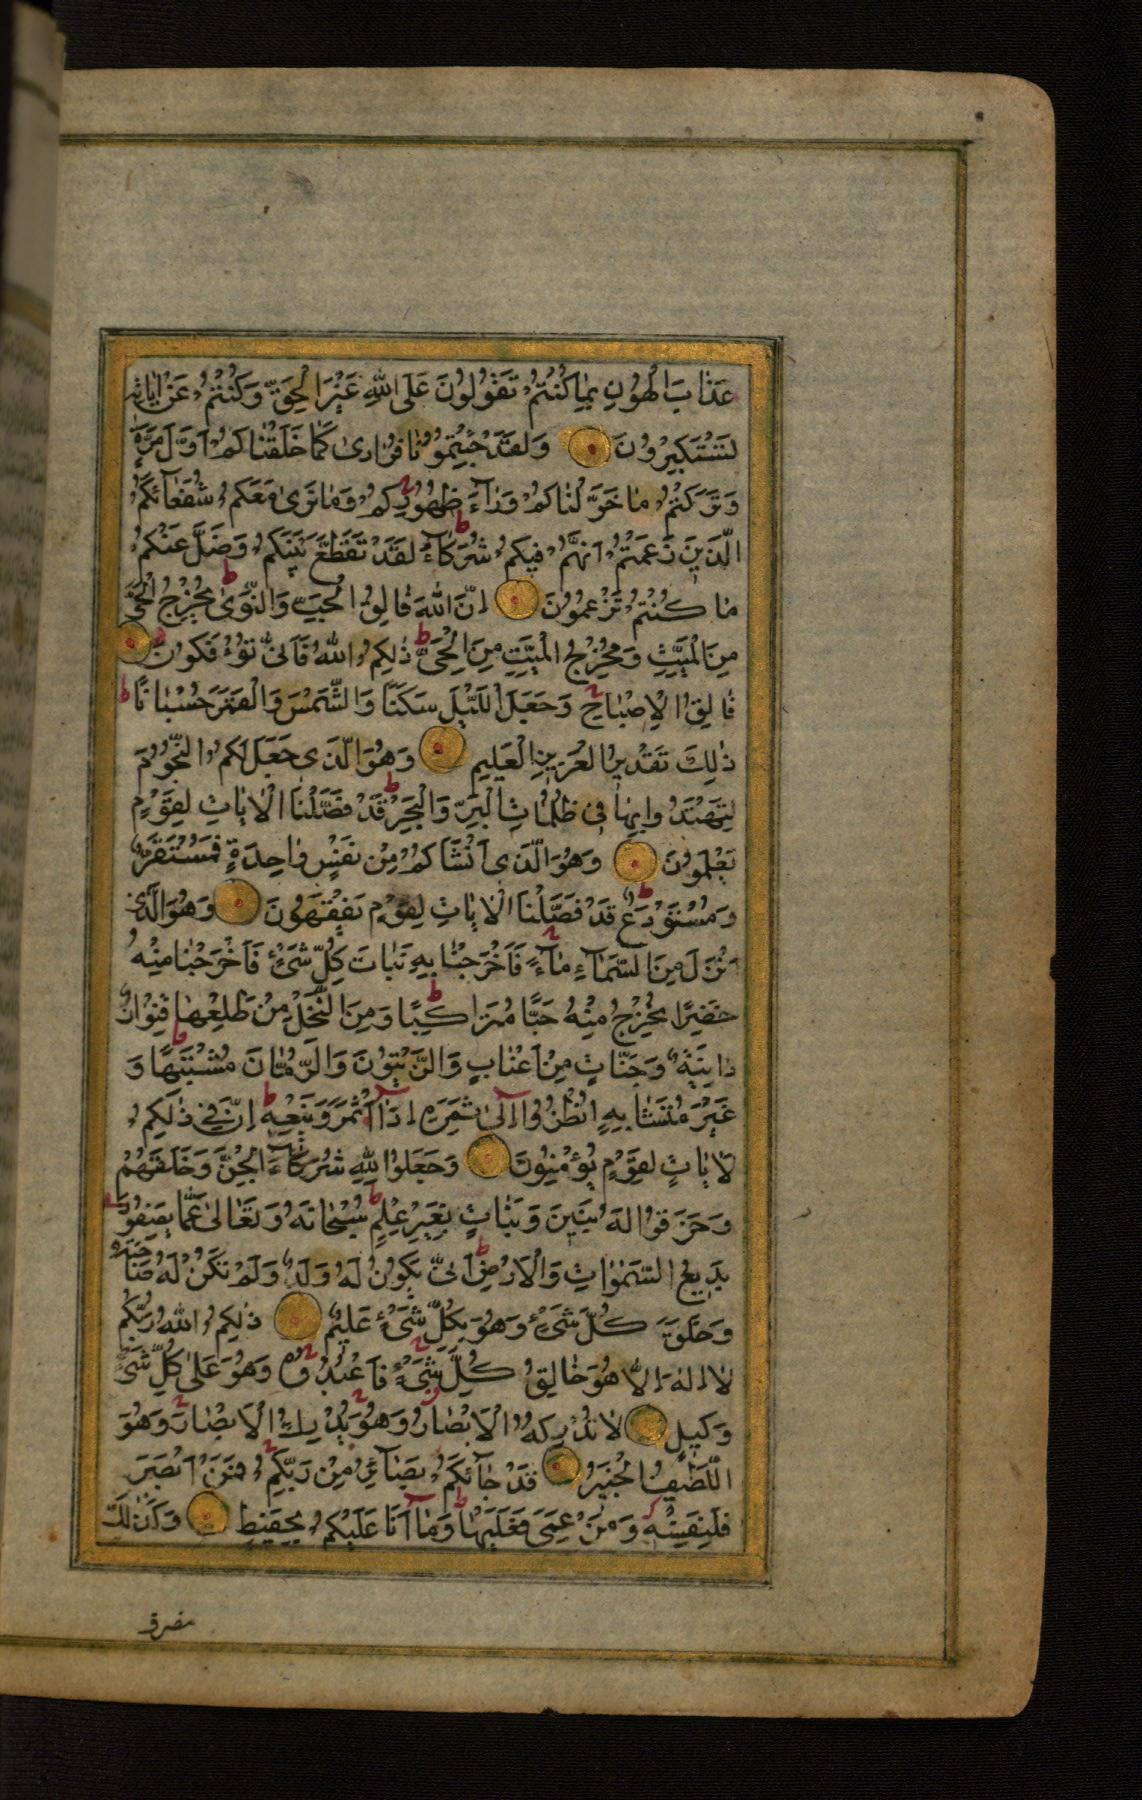 عَذَابَ الْهُونِ بِمَا كُنْتُمْ تَقُولُونَ عَلَى اللّٰهِ غَيْرَ الْحَقِّ وَكُنْتُمْ عَنْ اٰيَاتِهِ
تَسْتَكْبِرُونَ وَلَقَدْ جِئْتُمُونَا فُرَادٰى كَمَا خَلَقْنَاكُمْ اَوَّلَ مَرَّةٍ
وَتَرَكْتُمْ مَا خَوَّلْنَاكُمْ وَرَآءَ ظُهُورِكُمْ وَمَا نَرٰى مَعَكُمْ شُفَعَآئَكُمُ
الَّذِينَ زَعَمْتُمْ اَنَّهُمْ فِيكُمْ شُرَكَآءُ لَقَدْ تَقَطَّعَ بَيْنَكُمْ وَضَلَّ عَنْكُمْ
مَا كُنْتُمْ تَزْعُمُونَ اِنَّ اللّٰهَ فَالِقُ الْحَبِّ وَالنَّوٰى يُخْرِجُ الْحَيَّ
مِنَ الْمَيِّتِ وَمُخْرِجُ الْمَيِّتِ مِنَ الْحَيِّ ذٰلِكُمُ اللّٰهُ فَاَنّٰى تُؤْفَكُونَ
فَالِقُ الْاِصْبَاحِ وَجَعَلَ اللَّيْلَ سَكَنًا وَالشَّمْسَ وَالْقَمَرَ حُسْبَانًا
ذٰلِكَ تَقْدِيرُ الْعَزِيزِ الْعَلِيمِ وَهُوَ الَّذِى جَعَلَ لَكُمُ النُّجُومَ
لِتَهْتَدُوا بِهَا فِى ظُلُمَاتِ الْبَرِّ وَالْبَحْرِ قَدْ فَصَّلْنَا الْاٰيَاتِ لِقَوْمٍ
يَعْلَمُونَ وَهُوَ الَّذِى اَنْشَاَكُمْ مِنْ نَفْسٍ وَاحِدَةٍ فَمُسْتَقَرٌّ
وَمُسْتَوْدَعٌ قَدْ فَصَّلْنَا الْاٰيَاتِ لِقَوْمٍ يَفْقَهُونَ وَهُوَ الَّذِى
اَنْزَلَ مِنَ السَّمَآءِ مَآءً فَاَخْرَجْنَا بِهِ نَبَاتَ كُلِّ شَىْءٍ فَاَخْرَجْنَا مِنْهُ
خَضِرًا نُخْرِجُ مِنْهُ حَبًّا مُتَرَاكِبًا وَمِنَ النَّخْلِ مِنْ طَلْعِهَا قِنْوَانٌ
دَانِيَةٌ وَجَنَّاتٍ مِنْ اَعْنَابٍ وَالزَّيْتُونَ وَالرُّمَّانَ مُشْتَبِهًا وَ
غَيْرَ مُتَشَابِهٍ اُنْظُرُوا اِلٰى ثَمَرِهِ اِذَا اَثْمَرَ وَيَنْعِهِ اِنَّ فِى ذٰلِكُمْ
لَاٰيَاتٍ لِقَوْمٍ يُؤْمِنُونَ وَجَعَلُوا لِلّٰهِ شُرَكَآءَ الْجِنَّ وَخَلَقَهُمْ
وَخَرَقُوا لَهُ بَنِينَ وَبَنَاتٍ بِغَيْرِ عِلْمٍ سُبْحَانَهُ وَتَعَالٰى عَمَّا يَصِفُونَ
بَدِيعُ السَّمٰوَاتِ وَالْاَرْضِ اَنّٰى يَكُونُ لَهُ وَلَدٌ وَلَمْ تَكُنْ لَهُ صَاحِبَةٌ
وَخَلَقَ كُلَّ شَىْءٍ وَهُوَ بِكُلِّ شَىْءٍ عَلِيمٌ ذٰلِكُمُ اللّٰهُ رَبُّكُمْ
لَا اِلٰهَ اِلَّا هُوَ خَالِقُ كُلِّ شَىْءٍ فَاعْبُدُوهُ وَهُوَ عَلٰى كُلِّ شَىْءٍ
وَكِيلٌ لَا تُدْرِكُهُ الْاَبْصَارُ وَهُوَ يُدْرِكُ الْاَبْصَارَ وَهُوَ
اللَّطِيفُ الْخَبِيرُ قَدْ جَآئَكُمْ بَصَآئِرُ مِنْ رَبِّكُمْ فَمَنْ اَبْصَرَ
فَلِنَفْسِهِ وَمَنْ عَمِىَ فَعَلَيْهَا وَمَآ اَنَا عَلَيْكُمْ بِحَفِيظٍ وَكَذٰلِكَ
نصرف